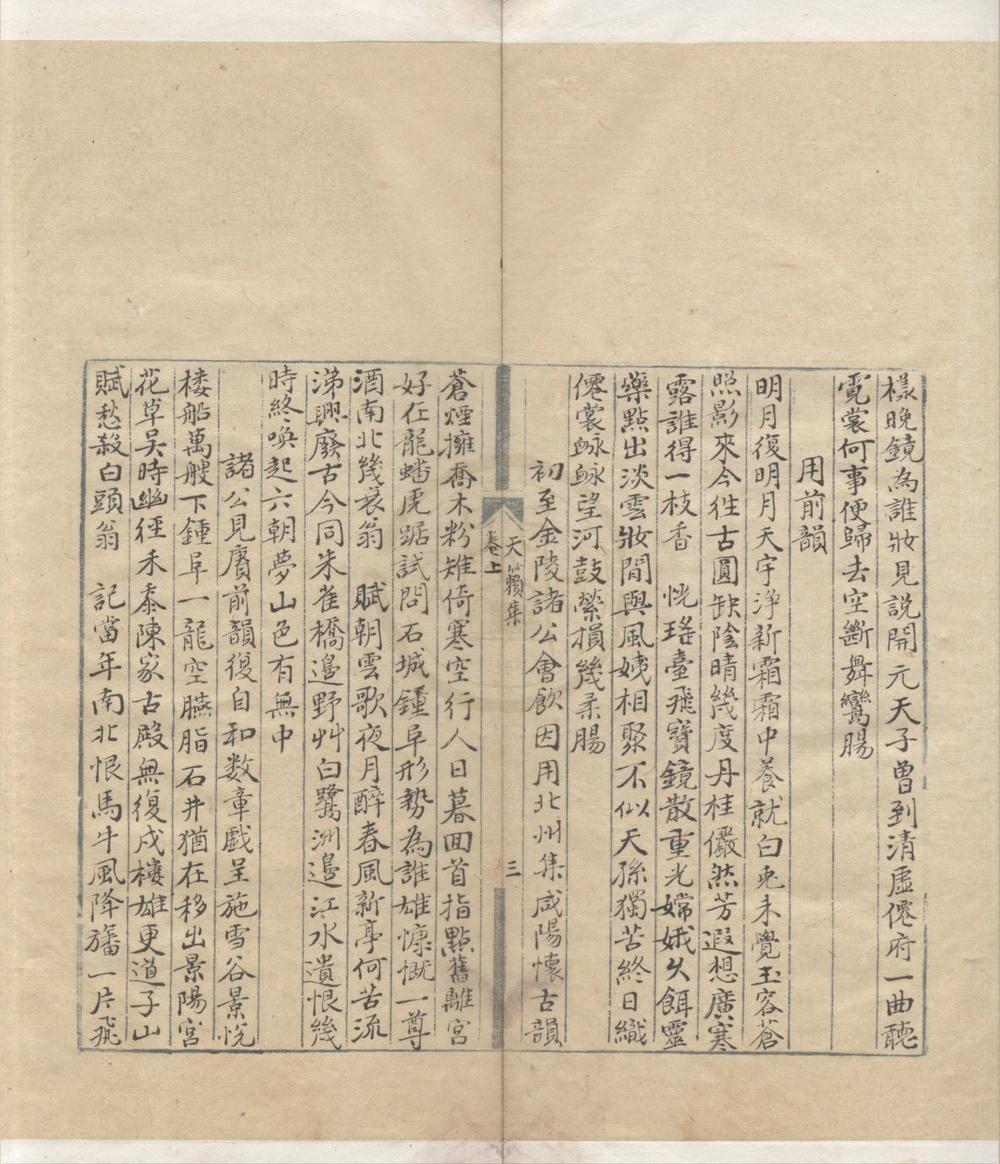 樣晚鏡為誰妝見説開元天子曽到清虛僊府一曲聽
霓裳何事便歸去空斷舞鸞腸
用前韻
明月復明月天宇淨新霜霜中養就白兎未覺玉容蒼
照影來今徃古圓缺陰晴幾度丹桂儼然芳遐想廣寒
露誰得一枝香　恍瑤臺飛寶鏡散重光嫦娥久餌靈
藥點出淡雲妝閒與風姨相聚不似天孫獨苦終日織
僊裳衇衇望河鼓縈損幾柔腸
初至金陵諸公會飲因用北州集咸陽懷古韻
天籟集
卷上
三
蒼煙擁喬木粉雉倚寒空行人日暮囬首指點舊離宮
好在龍蟠虎踞試問石城鍾阜形勢為誰雄慷慨一尊
酒南北幾衰翁　賦朝雲歌夜月醉春風新亭何苦流
涕興廢古今同朱雀橋邉野艸白鷺洲邉江水遺恨幾
時終喚起六朝夢山色有無中
諸公見賡前韻復自和数章戲呈施雪谷景悦
楼船萬艘下鍾阜一龍空臙脂石井猶在移出景陽宮
花草吴時幽徑禾黍陳家古殿無復戍樓雄更道子山
賦愁殺白頭翁　記當年南北恨馬牛風降旛一片飛